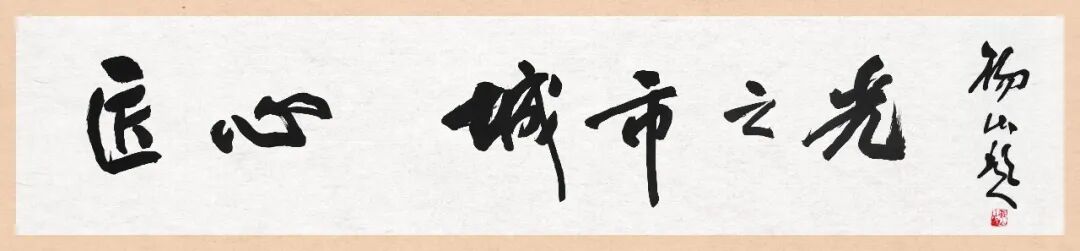 匠心 城市之光
杨山题